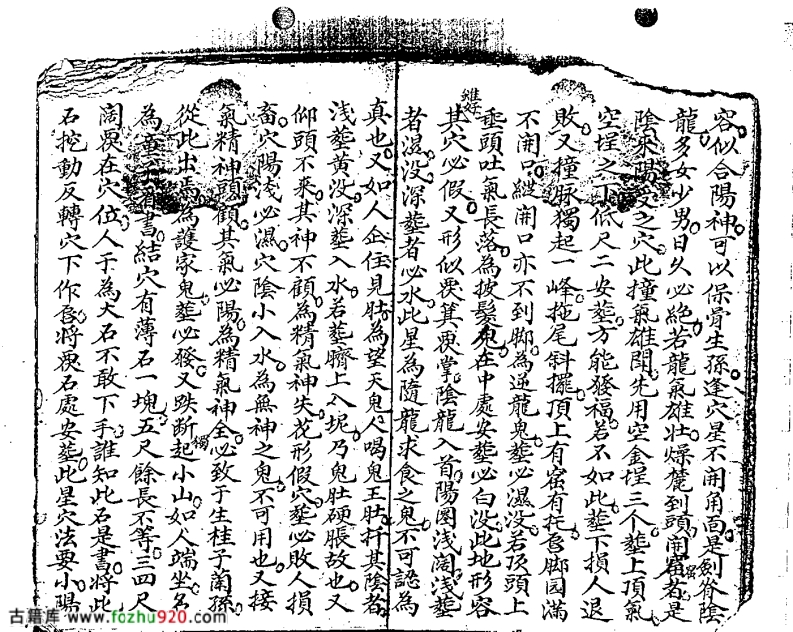 容似合陽神可以保骨生孫逢穴星不開角面是劍脊陰
龍多女少男日久必絕若龍氣雄壯燥麓到頭開窟者是
陰來陽之穴此撞氣雄聞先用空金埕三个塟上頂氣
空埕之下低尺二安塟方能發福若不如此塟下損人退
敗又撞脉獨起一峰拖尾斜擺頂上有窟有托唇脚园滿
不開口縱開口亦不到脚為逆龍鬼塟必濕没若頂頭上
垂頭吐氣長落為披髮鬼在中處安塟必白没此地形容
其穴必假又形似覂箕覂掌陰龍入首陽圏浅闊浅塟
者濕没深塟者必水此星為隨龍求食之鬼不可誌為
真也又如人企住見肚為望天鬼人喝鬼王肚扞其陰者
浅塟黄没深塟入水若塟臍上入坭乃鬼肚硬脹故也又
仰頭不釆其神不顧為精氣神失花形假穴塟必敗人損
畜穴陽浅必濕穴陰小入水為無神之鬼不可用也又接
氣精神頭顧其氣必陽為精氣神全必致于生桂子蘭孫
從此出為護家鬼塟必發又跌断起小山如人端坐名
為童子看書結穴有薄石一塊五尺餘長不等三四尺
闊覂在穴位人于為大石不敢下手誰知此石是書將此
石挖動反轉穴下作將覂石處安塟此星穴法要小陽
古籍库 www.fozhu920.com